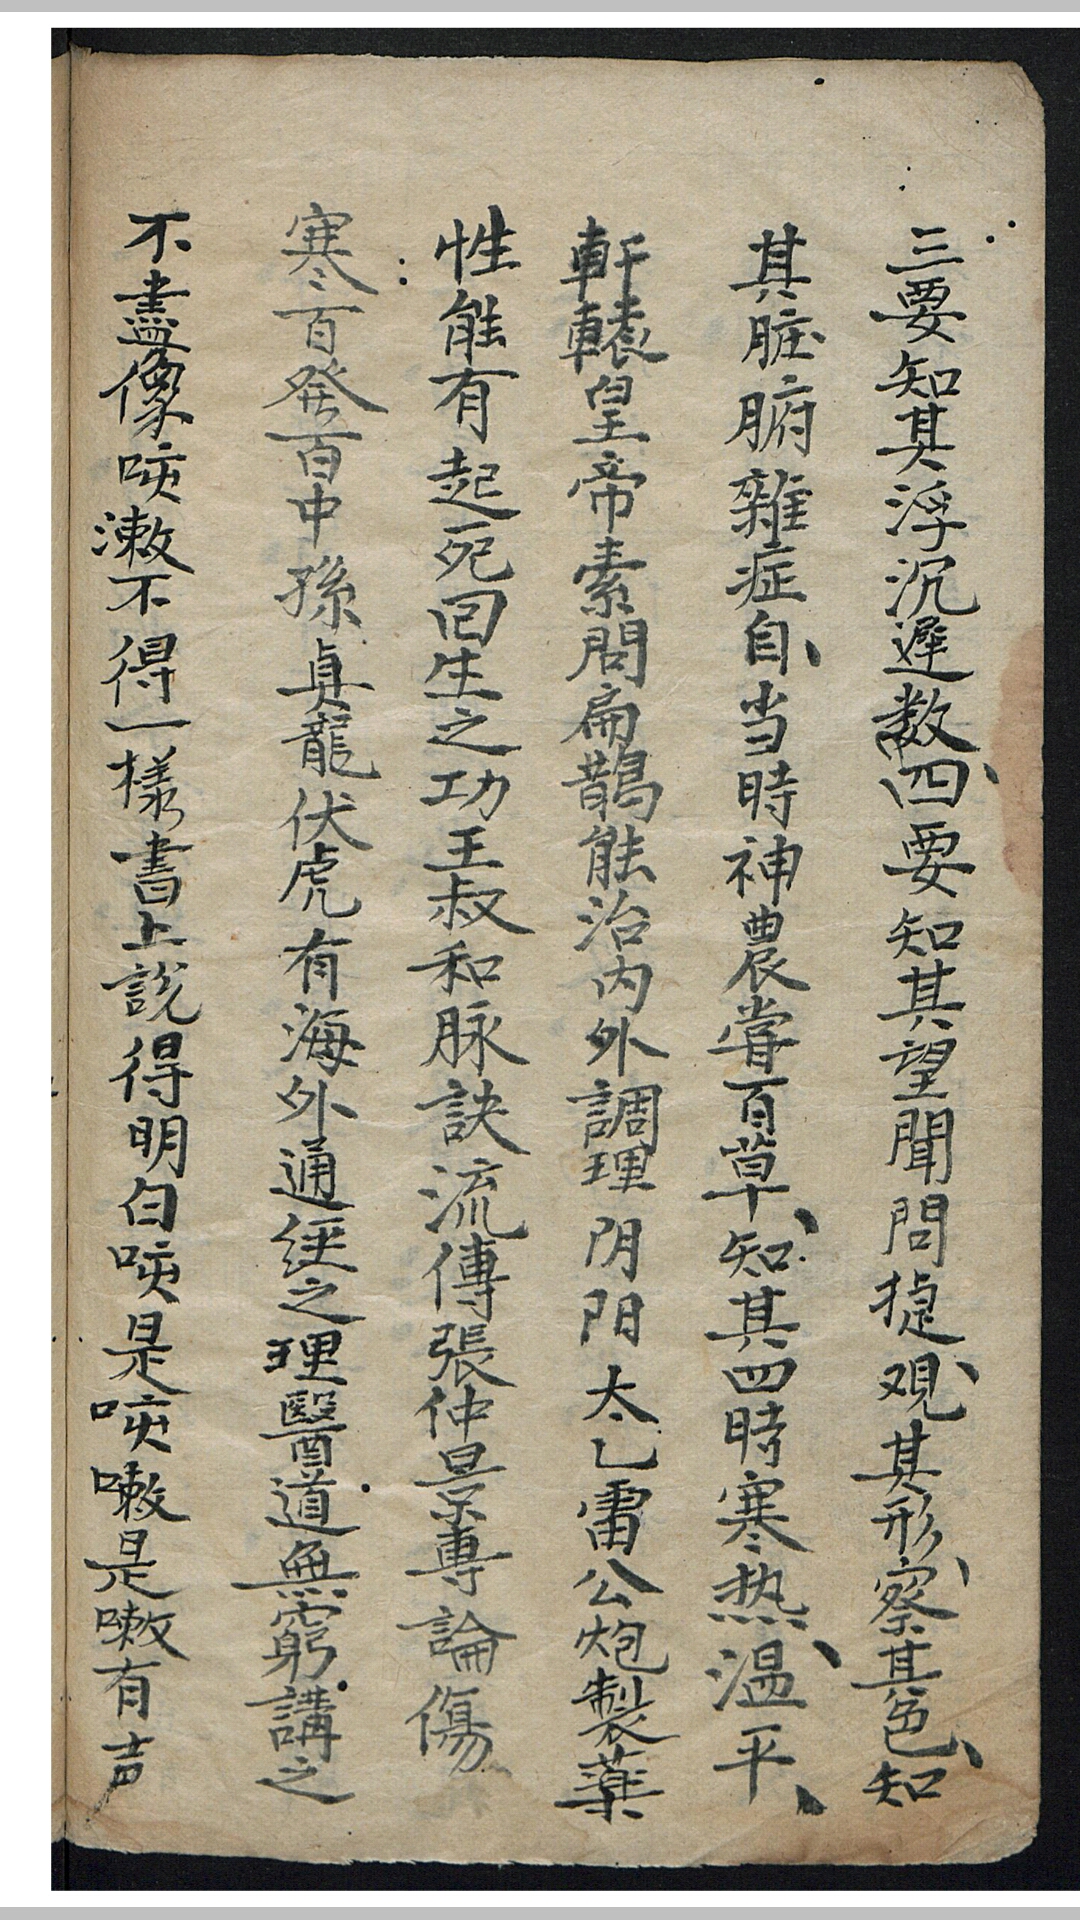 三要知其浮沉遲数、四要知其望聞問捷、观其形、察其色、知
其脏腑雜症自、当時神農嘗百草、知其四時寒热、温平、
軒轅皇帝素問扁鵲能治内外調理阴阳太乙雷公炮製薬
性能有起死回生之功王叔和脉訣流傳張仲景專論傷
寒百発百中孫真龍伏虎有海外通經之理醫道無窮講之
不盡像咳漱不得一樣書上說得明白咳是咳嗽是嗽有声